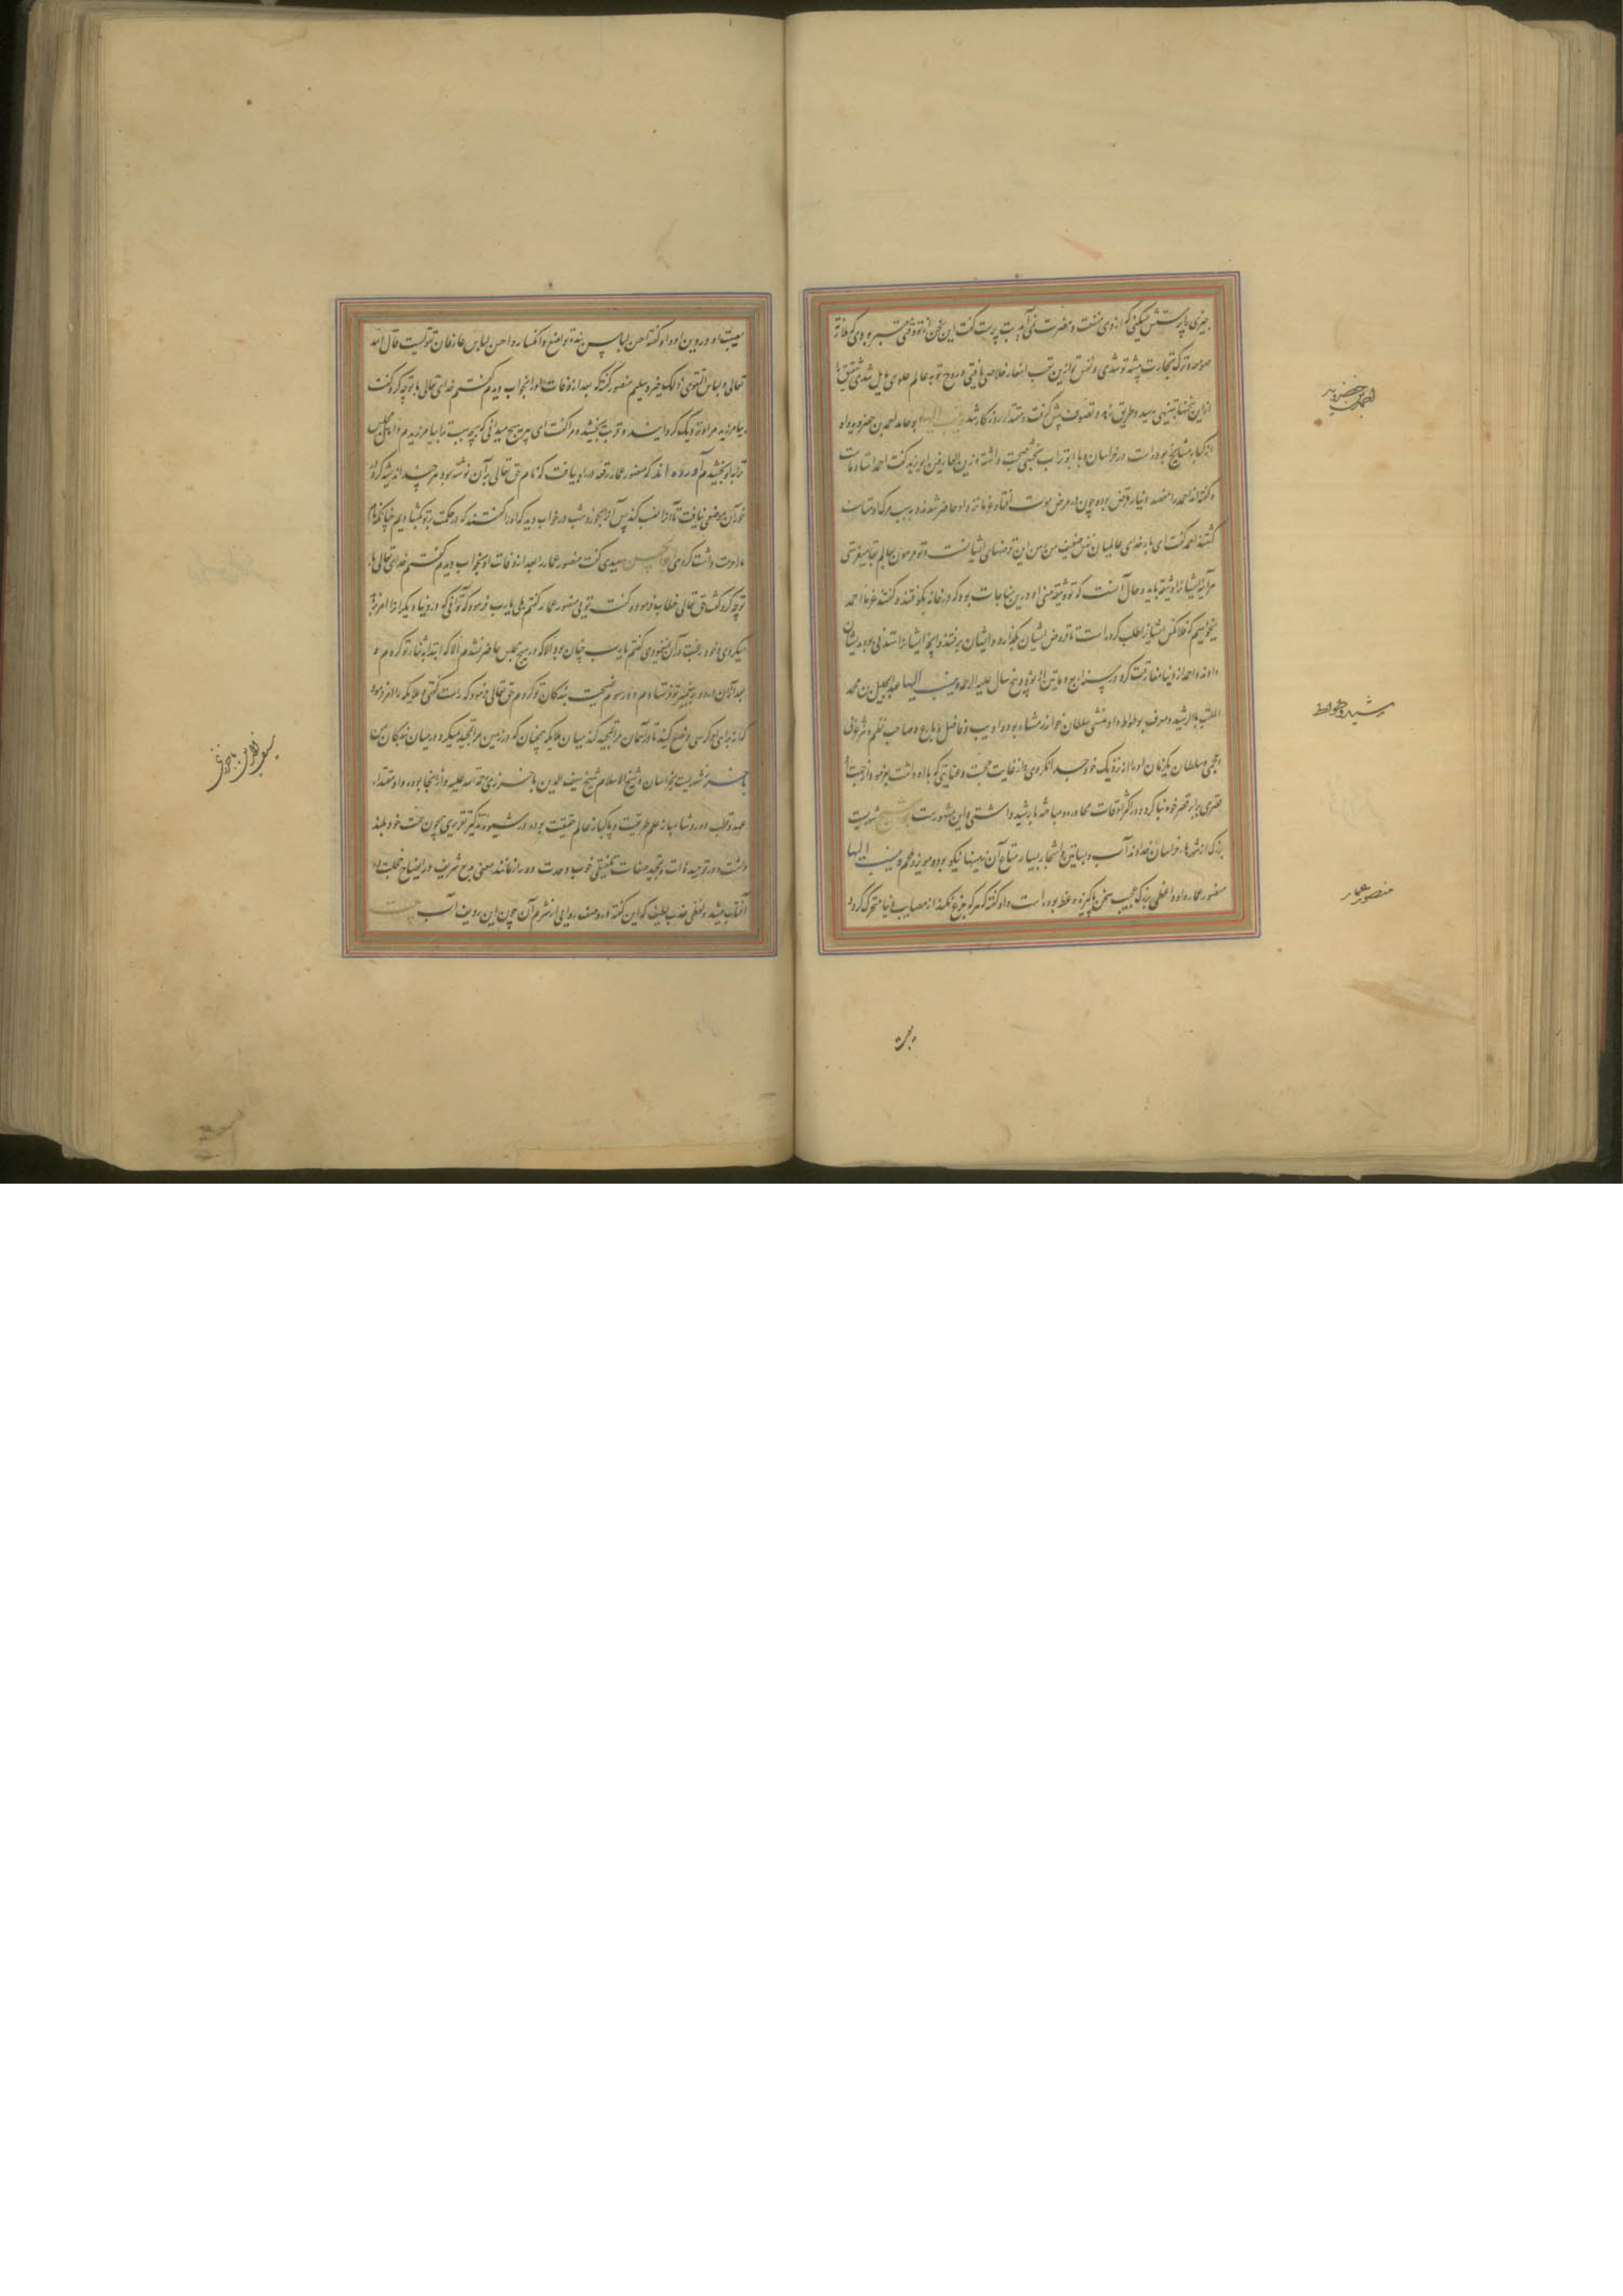 چیزی را پرستش میکنی که از وی منفعت و مضرت نمی آید بت پرست گفت این سخن از تو وقتی معتبر بودی که ملازم
صومعه و ترک تجارت پیشه تو شدی و نفس تو ازین تعب اسفار خلاصی یافتی و روح تو به عالم علوی مایل شدی شقیق را
ازین سخنها تنبیهی رسید و طریق زهد و تصوف پیش گرفت و مقتدای روزگار شد و ینسب الیها ابو حامد احمد بن خضرویه او
از کبار مشایخ بوده است در خراسان و با ابو تراب نخشبی صحبت داشته ازین العارفین ابو یزید گفت احمد استاد ماست
و گفته اند احمد را هفتصد دینار قرض بود چون در مرض موت افتاد غرما نزد او حاضر شدند و بسبب مرگ او متاسف
گشتند احمد گفت ای بار خدای عالمیان نفس ضعیف من رهن این قرضهای ایشانست و تو مرهون بعالم بقا میفرستی
هر آینه ایشانرا وثیقه باید و حال آنست که توئی وثیقه من او درین مناجات بود که در خانه بکوفتند و گفتند غرماء احمد
میخواهیم که فلان کس ایشانرا طلب کرده است تا قروض ایشان بگذارد و ایشان برفتند و آنچه ایشانرا استدنی بود بدیشان
دادند و احمد از دنیا مفارقت کرد در سنه اربع و مایتین و او نود و پنج سال علیه الرحمه و ینسب الیها عبدالجلیل بن محمد
الملقب بالرشید و معروف بوطواط و او منشی سلطان خوارزمشاه بود و ادیب و فاضل و بارع و صاحب نظم و نثر عربی
و عجمی و سلطان یک زمان او را از نزدیک خود جدا نکردی و از غایت محبت و عنایتی که با او داشت بفرمود و از جهت او
قصری برابر قصر خود بنا کرد و در اکثر اوقات محاوره و مباحثه با رشید داشتی و این مشهور است بوشنج شهریست
بزرگ از شهرهای خراسان خداوند آب و بساتین و اشجار بسیار متاع آن زمینها نیکو بود و مویز و لحم و ینسب الیها
منصور عمار او واعظی بزرگ عجیب سخن پاکیزه وعظ بوده است و او گفته که هر که جزع کند از مصایب دنیا متحرک گردد
احمد بن خضرویه
رشید وطواط
منصور عمار
مصیبت او در دین او و او گفته احسن لباس بنده تواضع و انکسار و احسن لباس عارفان تقویست قال الله
تعالی و لباس التقوی ذلک خیر و سلیم منصور گفته که بعد از وفات او را بخواب دیدم گفتم خدای تعالی با تو چه کرد گفت
بیامرزید مرا و نزدیک گردانید و قربت بخشید و مرا گفت ای پیر هیچ میدانی که بچه سبب ترا بیامرزیدم و اهل مجلس
ترا بتو بخشیدم آورده اند که منصور عمار رقعه در راه بیافت که نام حق تعالی بر آن نوشته بود هر چند اندیشه کرد در
خور آن موضعی نیافت تا آنرا نصب کند پس آنرا بخورد شب در خواب دید که او را گفتند که در حکمت بر تو گشادیم چنانکه نام
ما حرمت داشت کردی ابو الحسن سعیدی گفت منصور عمار را بعد از وفات او بخواب دیدم گفتم خدای تعالی با
تو چه کرد گفت حق تعالی خطاب فرموده گفت تویی منصور عمار گفتم بلی یا رب فرمود که تو آنی که در دنیا دیگرانرا امر زهد
میکردی و خود رغبت در آن مینمودی گفتم یا رب چنان بود الا که در هیچ مجلس حاضر نشدم الا که ابتدا به ثنای تو کردم و
بعد از آن درود بر پیغمبر تو فرستادم و در سوم نصیحت بندگان تو کردم حق تعالی فرمود که راست گفتی و ملایکه را امر فرمود
که از برای او کرسی وضع کنید تا در آسمان مرا تمجید کند میان ملایکه همچنان که در زمین مرا تمجید میکرد در میان بندگان من
باخرز شهریست بخراسان و شیخ الاسلام شیخ سیف الدین باخرزی رحمة الله علیه از آنجا بوده و او مقتدای
عهد و قطب دور و شاهباز علم طریقت و پاکباز عالم حقیقت بوده در شیوه تذکیر تقریری چون همت خود بلند
داشت و در توحید ذات و تمجید صفات تلفیقی خوب و وحدت و دور از مانند معنی بدیع شریف در ایضاح خجلت ده
آفتاب میشد و لفظی عذب لطیف که این گفته او در صف روایی از شرم آن چون این ردیف آب
سیف الدین باخرزی